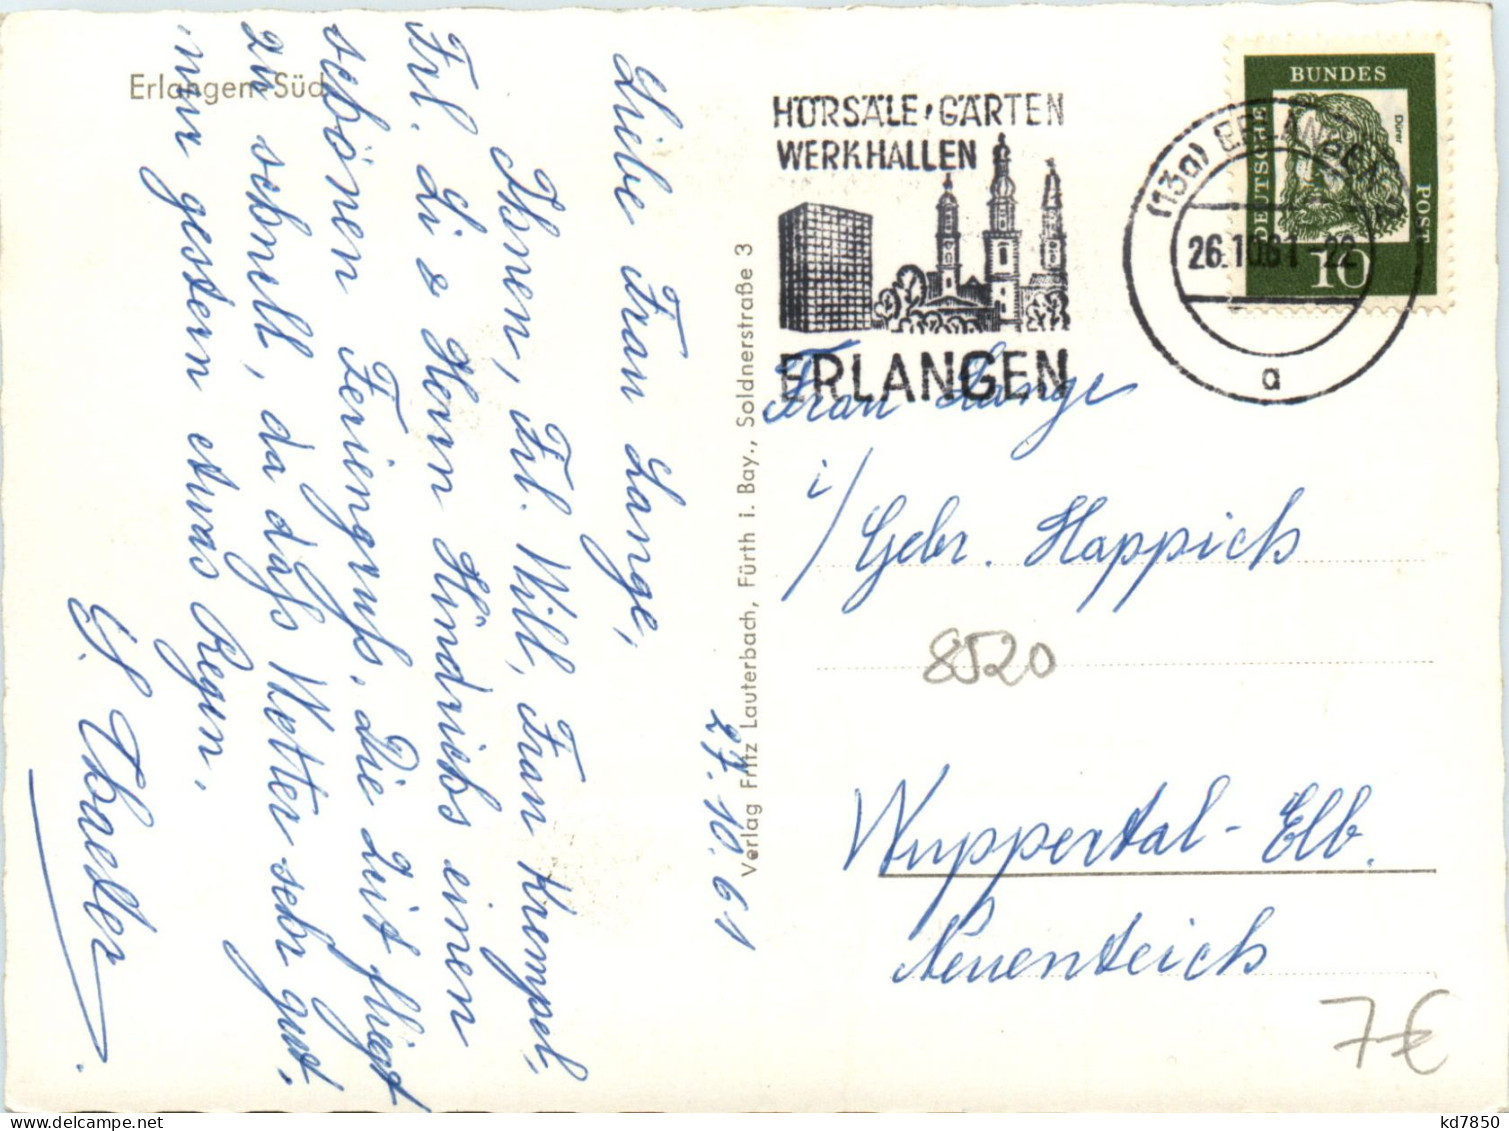 Erlangen-Süd
27.10.61
Liebe Frau Lange,
Ihnen, Frl. Will, Frau Krempel,
Frl. Li & Herrn Hindrichs einen
schönen Feriengruß. Die Zeit fliegt
zu schnell, da das Wetter sehr gut,
nur gestern etwas Regen.
Verlag Fritz Lauterbach, Fürth i. Bay., Soldnerstraße 3
HÖRSÄLE, GÄRTEN
WERKHALLEN
ERLANGEN
(13a) ERLANGEN
26.10.61-22
a
DEUTSCHE
BUNDES
POST
Dürer
10
Frau Lange
i/ Gebr. Happich
8520
Wuppertal-Elb.
Neuenteich
7€
kd7850